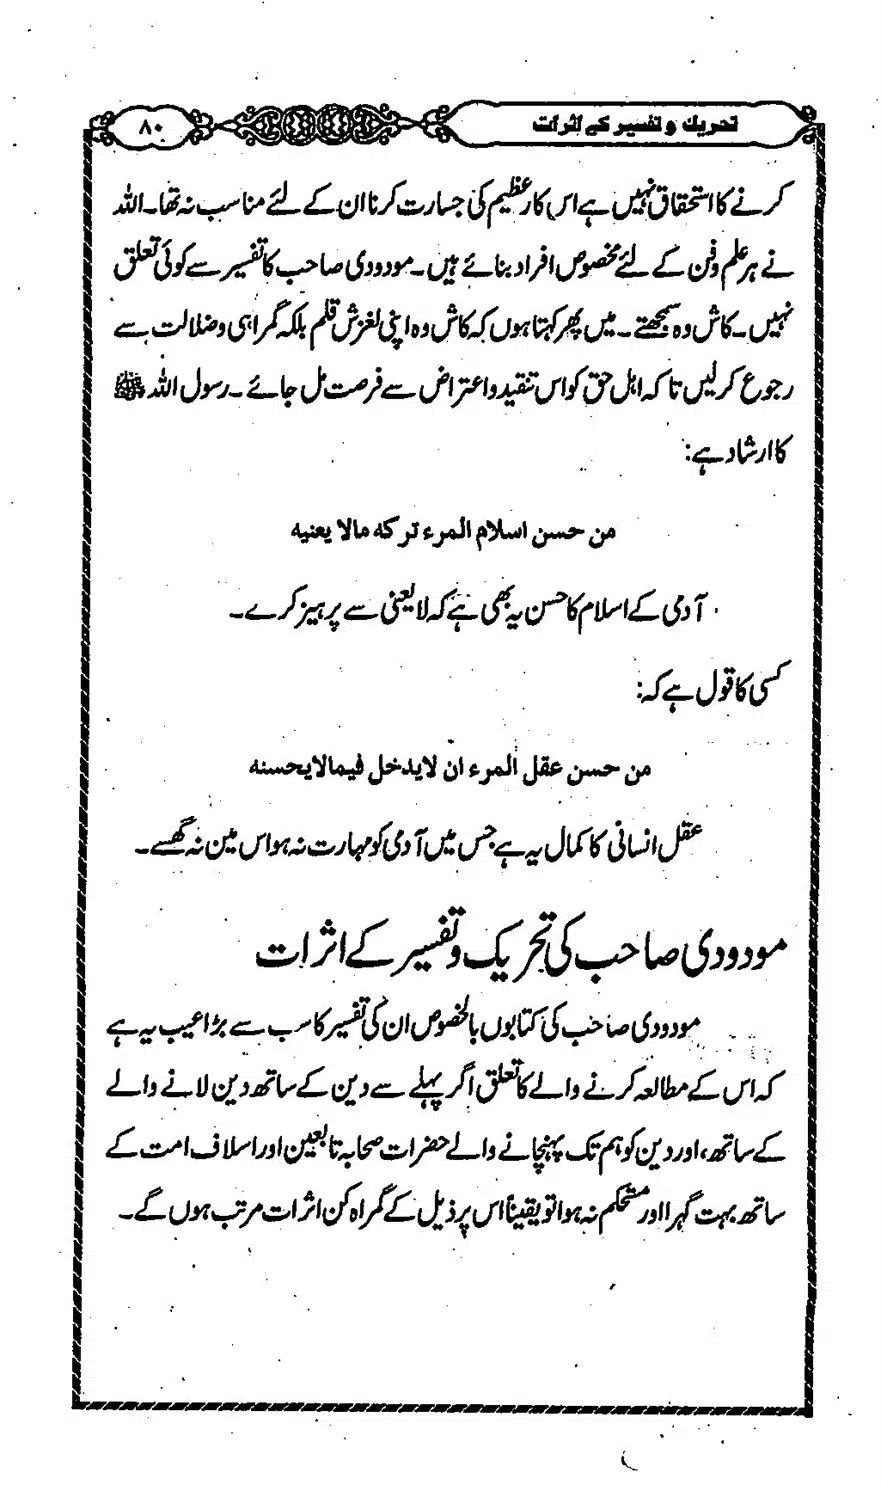 تحریک و تفسیر کے اثرات
۸۰
کرنے کا استحقاق نہیں ہے اس کار عظیم کی جسارت کرنا ان کے لئے مناسب نہ تھا۔ اللہ
نے ہر علم وفن کے لئے مخصوص افراد بنائے ہیں۔ مودودی صاحب کا تفسیر سے کوئی تعلق
نہیں۔ کاش وہ سمجھتے۔ میں پھر کہتا ہوں کہ کاش وہ اپنی لغزش قلم بلکہ گمراہی وضلالت سے
رجوع کر لیں تا کہ اہل حق کو اس تنقید و اعتراض سے فرصت مل جائے۔ رسول اللہ ﷺ
کا ارشاد ہے:
من حسن اسلام المرء ترکه مالا یعنیه
آدمی کے اسلام کا حسن یہ بھی ہے کہ لا یعنی سے پرہیز کرے۔
کسی کا قول ہے کہ:
من حسن عقل المرء ان لایدخل فیمالایحسنه
عقل انسانی کا کمال یہ ہے جس میں آدمی کو مہارت نہ ہو اس مین نہ گھسے۔
مودودی صاحب کی تحریک و تفسیر کے اثرات
مودودی صاحب کی کتابوں بالخصوص ان کی تفسیر کا سب سے بڑا عیب یہ ہے
کہ اس کے مطالعہ کرنے والے کا تعلق اگر پہلے سے دین کے ساتھ دین لانے والے
کے ساتھ، اور دین کو ہم تک پہنچانے والے حضرات صحابہ تابعین اور اسلاف امت کے
ساتھ بہت گہرا اور مستحکم نہ ہوا تو یقیناً اس پر ذیل کے گمراہ کن اثرات مرتب ہوں گے۔